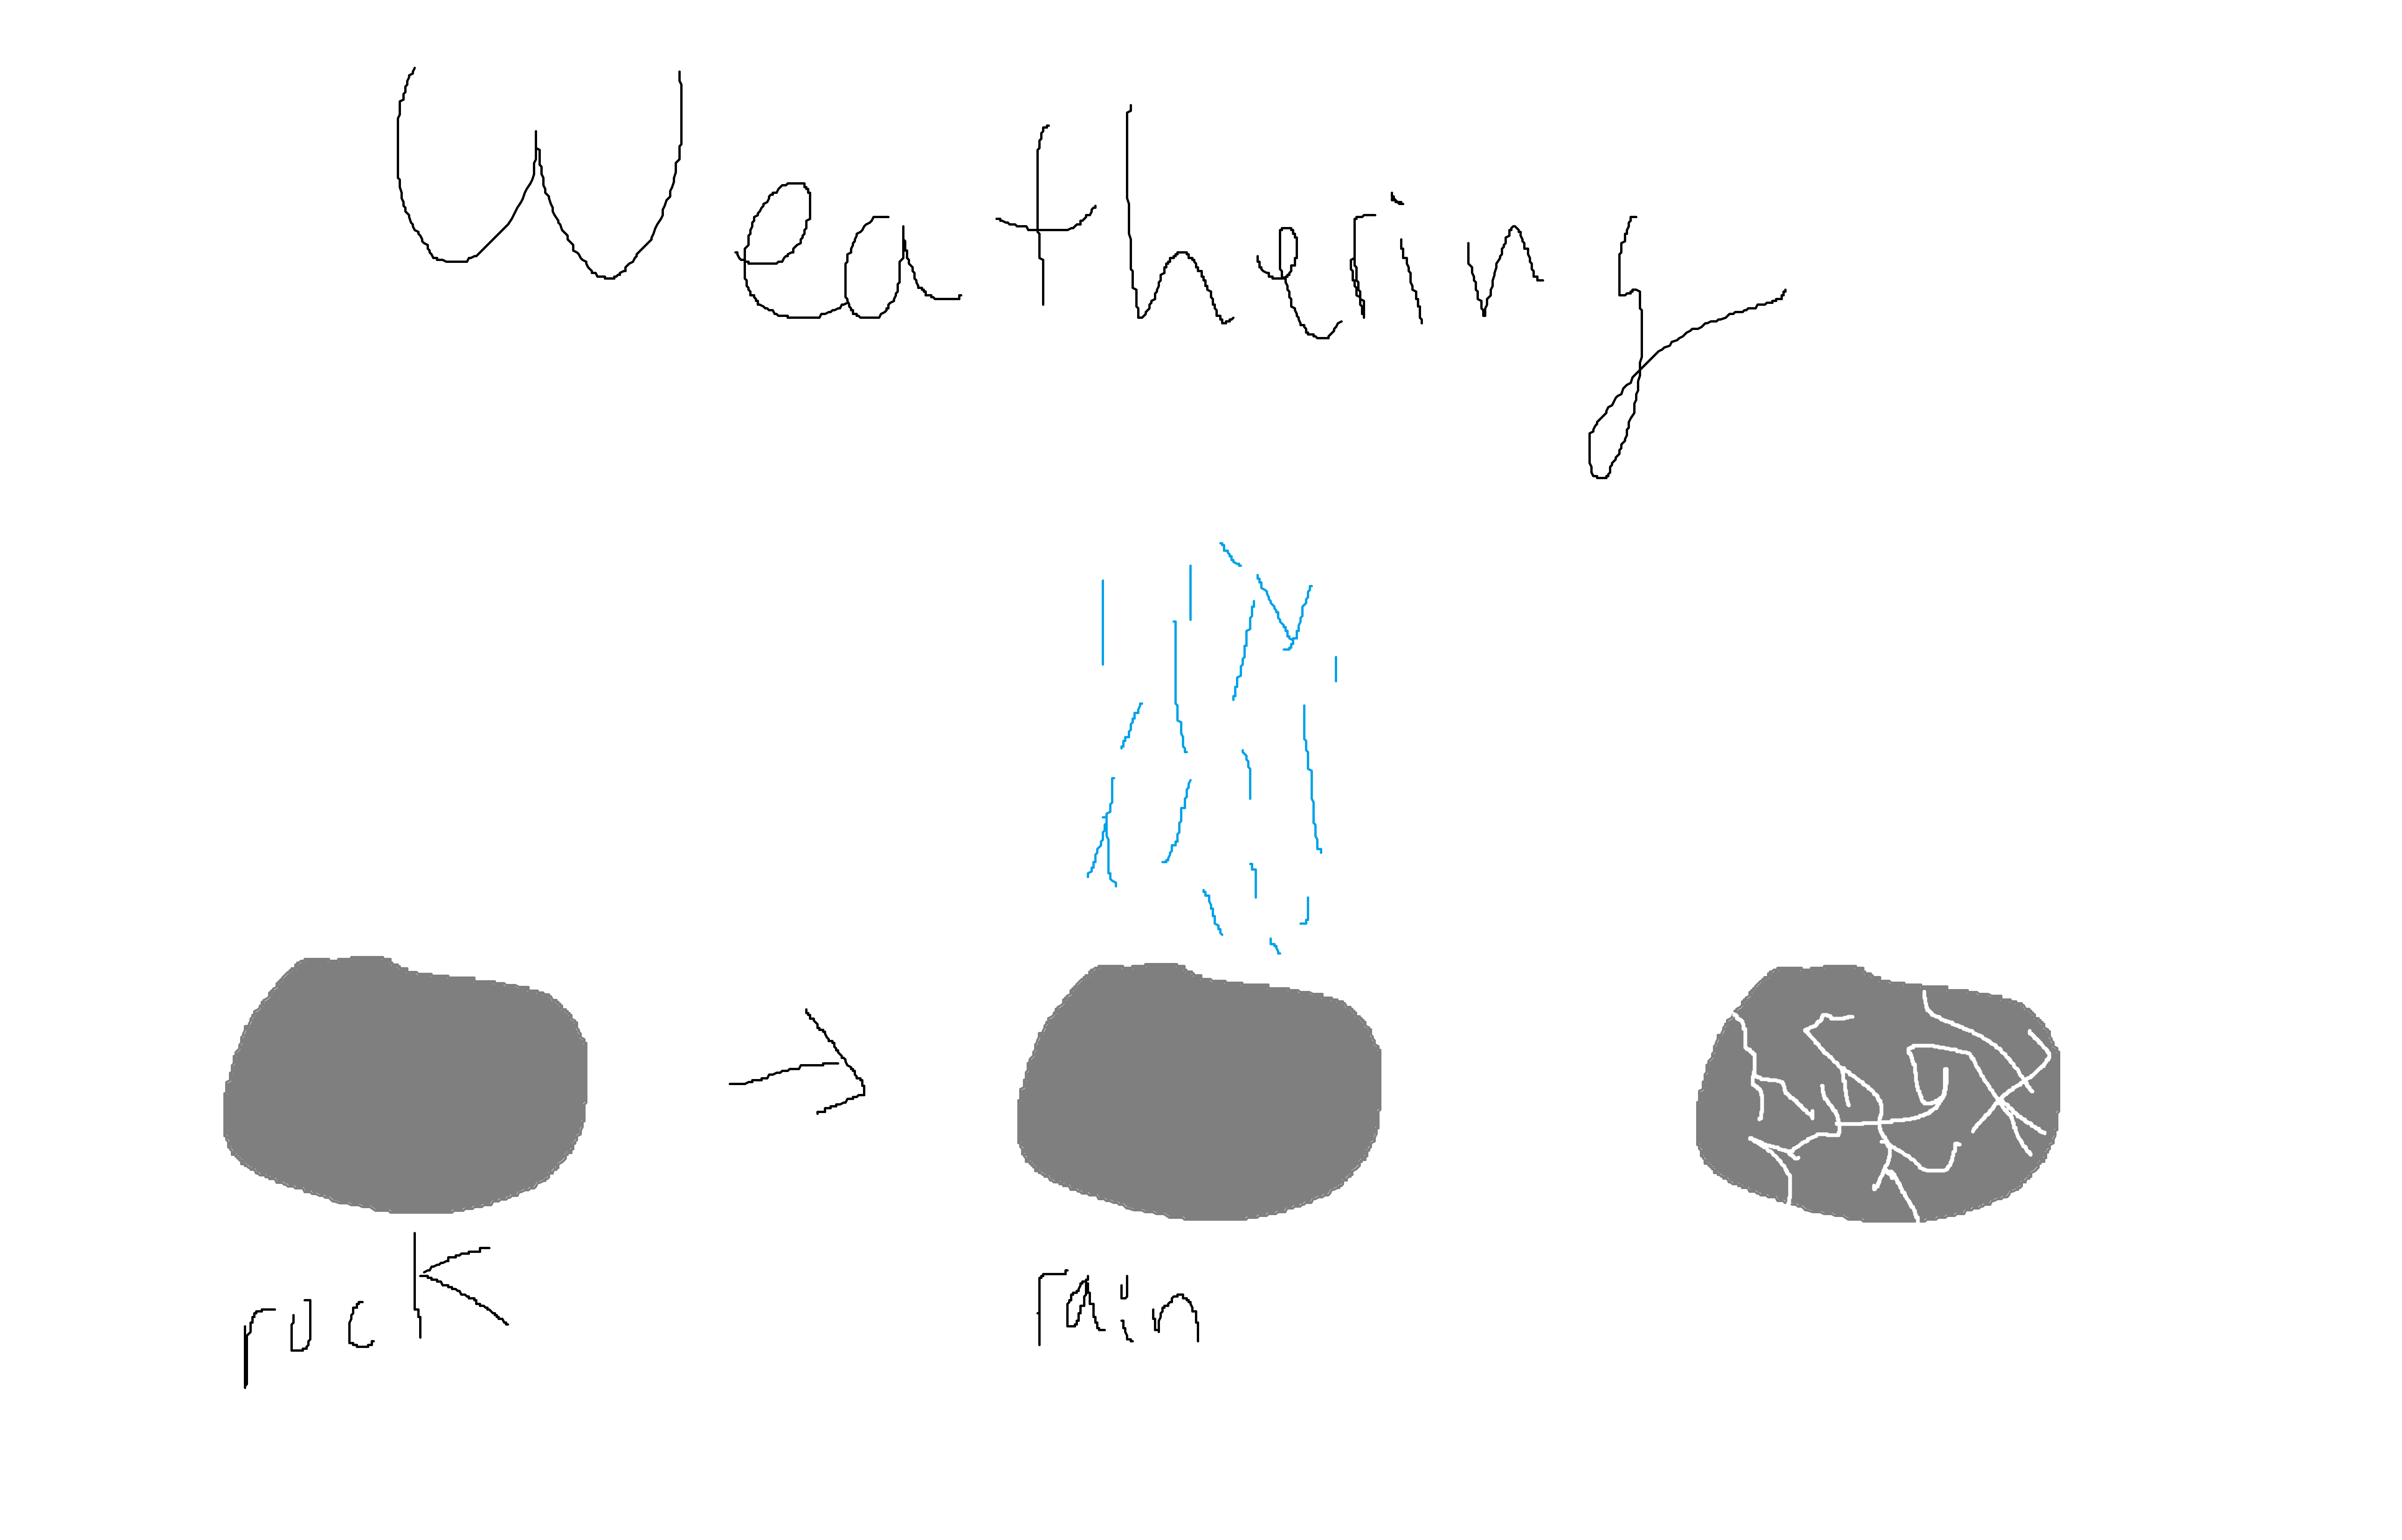 Weathering
rock
rain